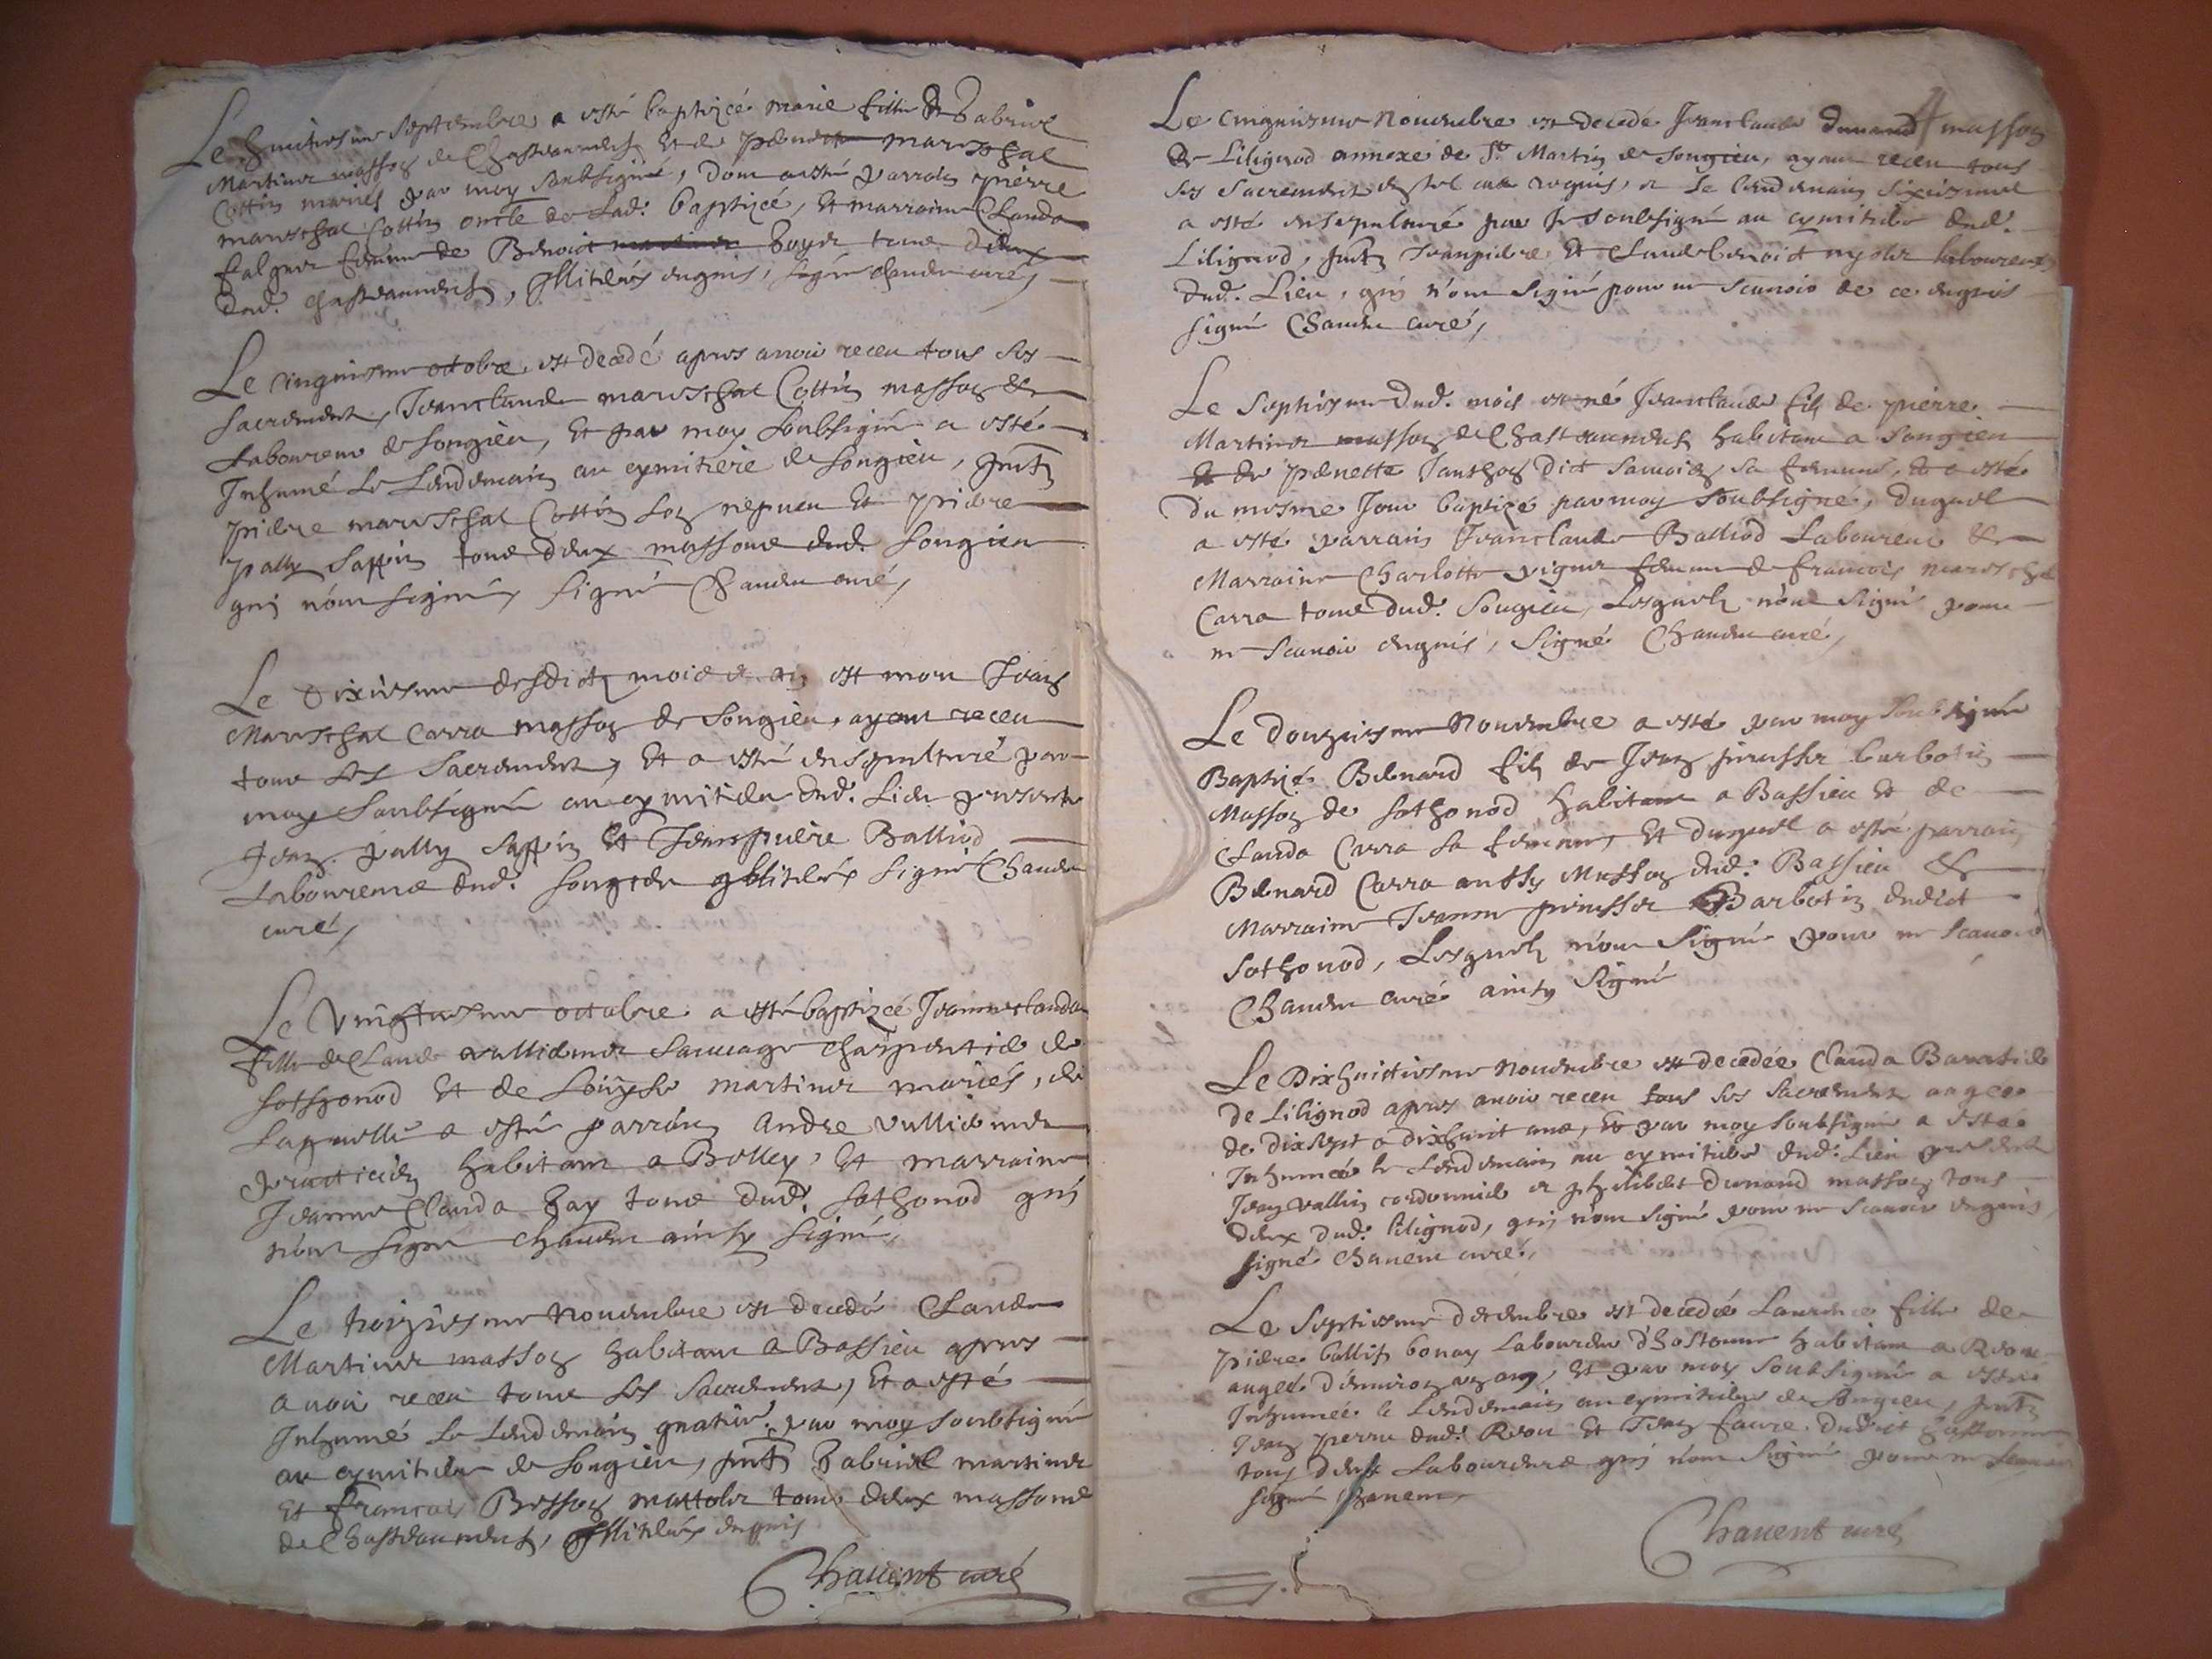 Le huictiesme Septembre a esté baptizée marie fille de Gabriel
Martiner masson de Chasteauneuf et de pernette mareschal
Cottin mariés par moy soubsigné, dont a esté parrain pierre
mareschal Cottin oncle de lad. baptizée, et marraine Clauda
falquer femme de Benoict Goyer tous deux
dud. Chasteauneuf, illiterés enquis, signé Chauent curé,
Le cinquiesme octobre est decedé apres auoir receu tous ses
sacrements, Jeanclaude mareschal Cottin masson et
laboureur de Songieu, et par moy soubsigné a esté
Inhumé le lendemain au cymitiere de Songieu, pnts
pierre mareschal Cottin son nepueu et pierre
pally Sappin tous deux massons dud. Songieu
qui n'ont signé, signé Chauent curé,
Le dixiesme desdicts mois et an est mort Jean
Mareschal Carra masson de Songieu, ayant receu
tous ses sacrements, et a esté ensepulturé par
moy soubsigné au cymitiere dud. lieu presents
Jean pally Sappin et Jeanpierre Balliod
laboureurs dud. Songieu illiterés signé Chauent
curé,
Le vingtiesme octobre a esté baptizée Jeanneclauda
fille de Claude vulliemer Sauuage charpentier de
Sothonod et de Louyse martiner mariés, de
laquelle a esté parrain Andre vulliemer
practicien habitant a Bolley, et marraine
Jeanne Clauda Gay tous dud. Sothonod qui
n'ont signé Chauent ainsy signé,
Le troiziesme Nouembre est decedé Claude
Martiner masson habitant a Bassieu apres
auoir receu tous ses sacrements, et a esté
Inhumé le lendemain par moy soubsigné
au cymitiere de Songieu, pnts Gabriel martiner
et francois Besson mattoler tous deux massons
de Chasteauneuf, illiterés enquis
Chauent curé
Le cinquiesme Nouembre est decedé Jeanclaude dunand masson
de Lilignod annexe de St Martin de Songieu, ayant receu tous
ses sacrements requis, et le lendemain sixiesme
a esté ensepulturé par je soubsigné au cymitiere dud.
Lilignod, pnts Jeanpierre et Claude benoict laboureurs
dud. Lieu, qui n'ont signé pour ne scauoir de ce enquis
signé Chauent curé,
Le Septiesme dud. mois est né Jeanclaude fils de pierre
Martiner masson de Chasteauneuf habitant a Songieu
et de pernette Janthon dict Sauoien sa femme, et a esté
du mesme jour baptizé par moy soubsigné, duquel
a esté parrain Jeanclaude Balliod laboureur et
Marraine Charlotte femme de francois mareschal
Carra tous dud. Songieu, lesquels n'ont signé pour
ne scauoir enquis, Signé Chauent curé,
Le douziesme Nouembre a esté par moy soubsigné
Baptizé Bernard fils de Jean barbotin
Masson de Sothonod habitant a Bassieu et de
Clauda Carra sa femme, et duquel a esté parrain
Bernard Carra aussy Masson dud. Bassieu et
Marraine Jeanne Barbotin dudict
Sothonod, Lesquels n'ont signé pour ne scauoir
Chauent curé ainsy signé
Le Dixhuictiesme Nouembre est decedée Clauda
de Lilignod apres auoir receu tous ses sacrements aagee
de dixsept a dixhuit ans, et par moy soubsigné a esté
Inhumée le lendemain au cymitiere dud. Lieu presents
Jean vallin cordonnier et philibert dunand masson tous
deux dud. Lilignod, qui n'ont signé pour ne scauoir enquis,
signé Chauent curé,
Le Septiesme decembre est decedée Laurence fille de
pierre ballif bonay laboureur d'hostonne habitant a
augée d'enuiron un an, et par moy soubsigné a esté
Inhumée le lendemain au cymitiere de Songieu, pnts
Jean perru dud. et Jean faure dudict hostonne
tous deux laboureurs qui n'ont signé pour ne scauoir
signé Chauent
Chauent curé